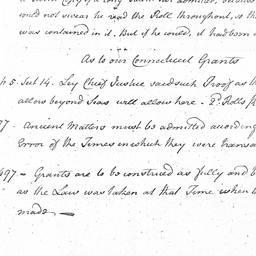 could not swear he read the Roll throughout, is th
was contained in it. But if he could, it had been n
As to our Connecticut Grants
5. Sect 14. Ley Chief Justice said such Proof as th
allow beyond Seas will allow here - 2. Rolls
Ancient Matters must be admitted according
Error of the Times in which they were transac
497. - Grants are to be construed as fully and b
as the Law was taken at that Time when
made